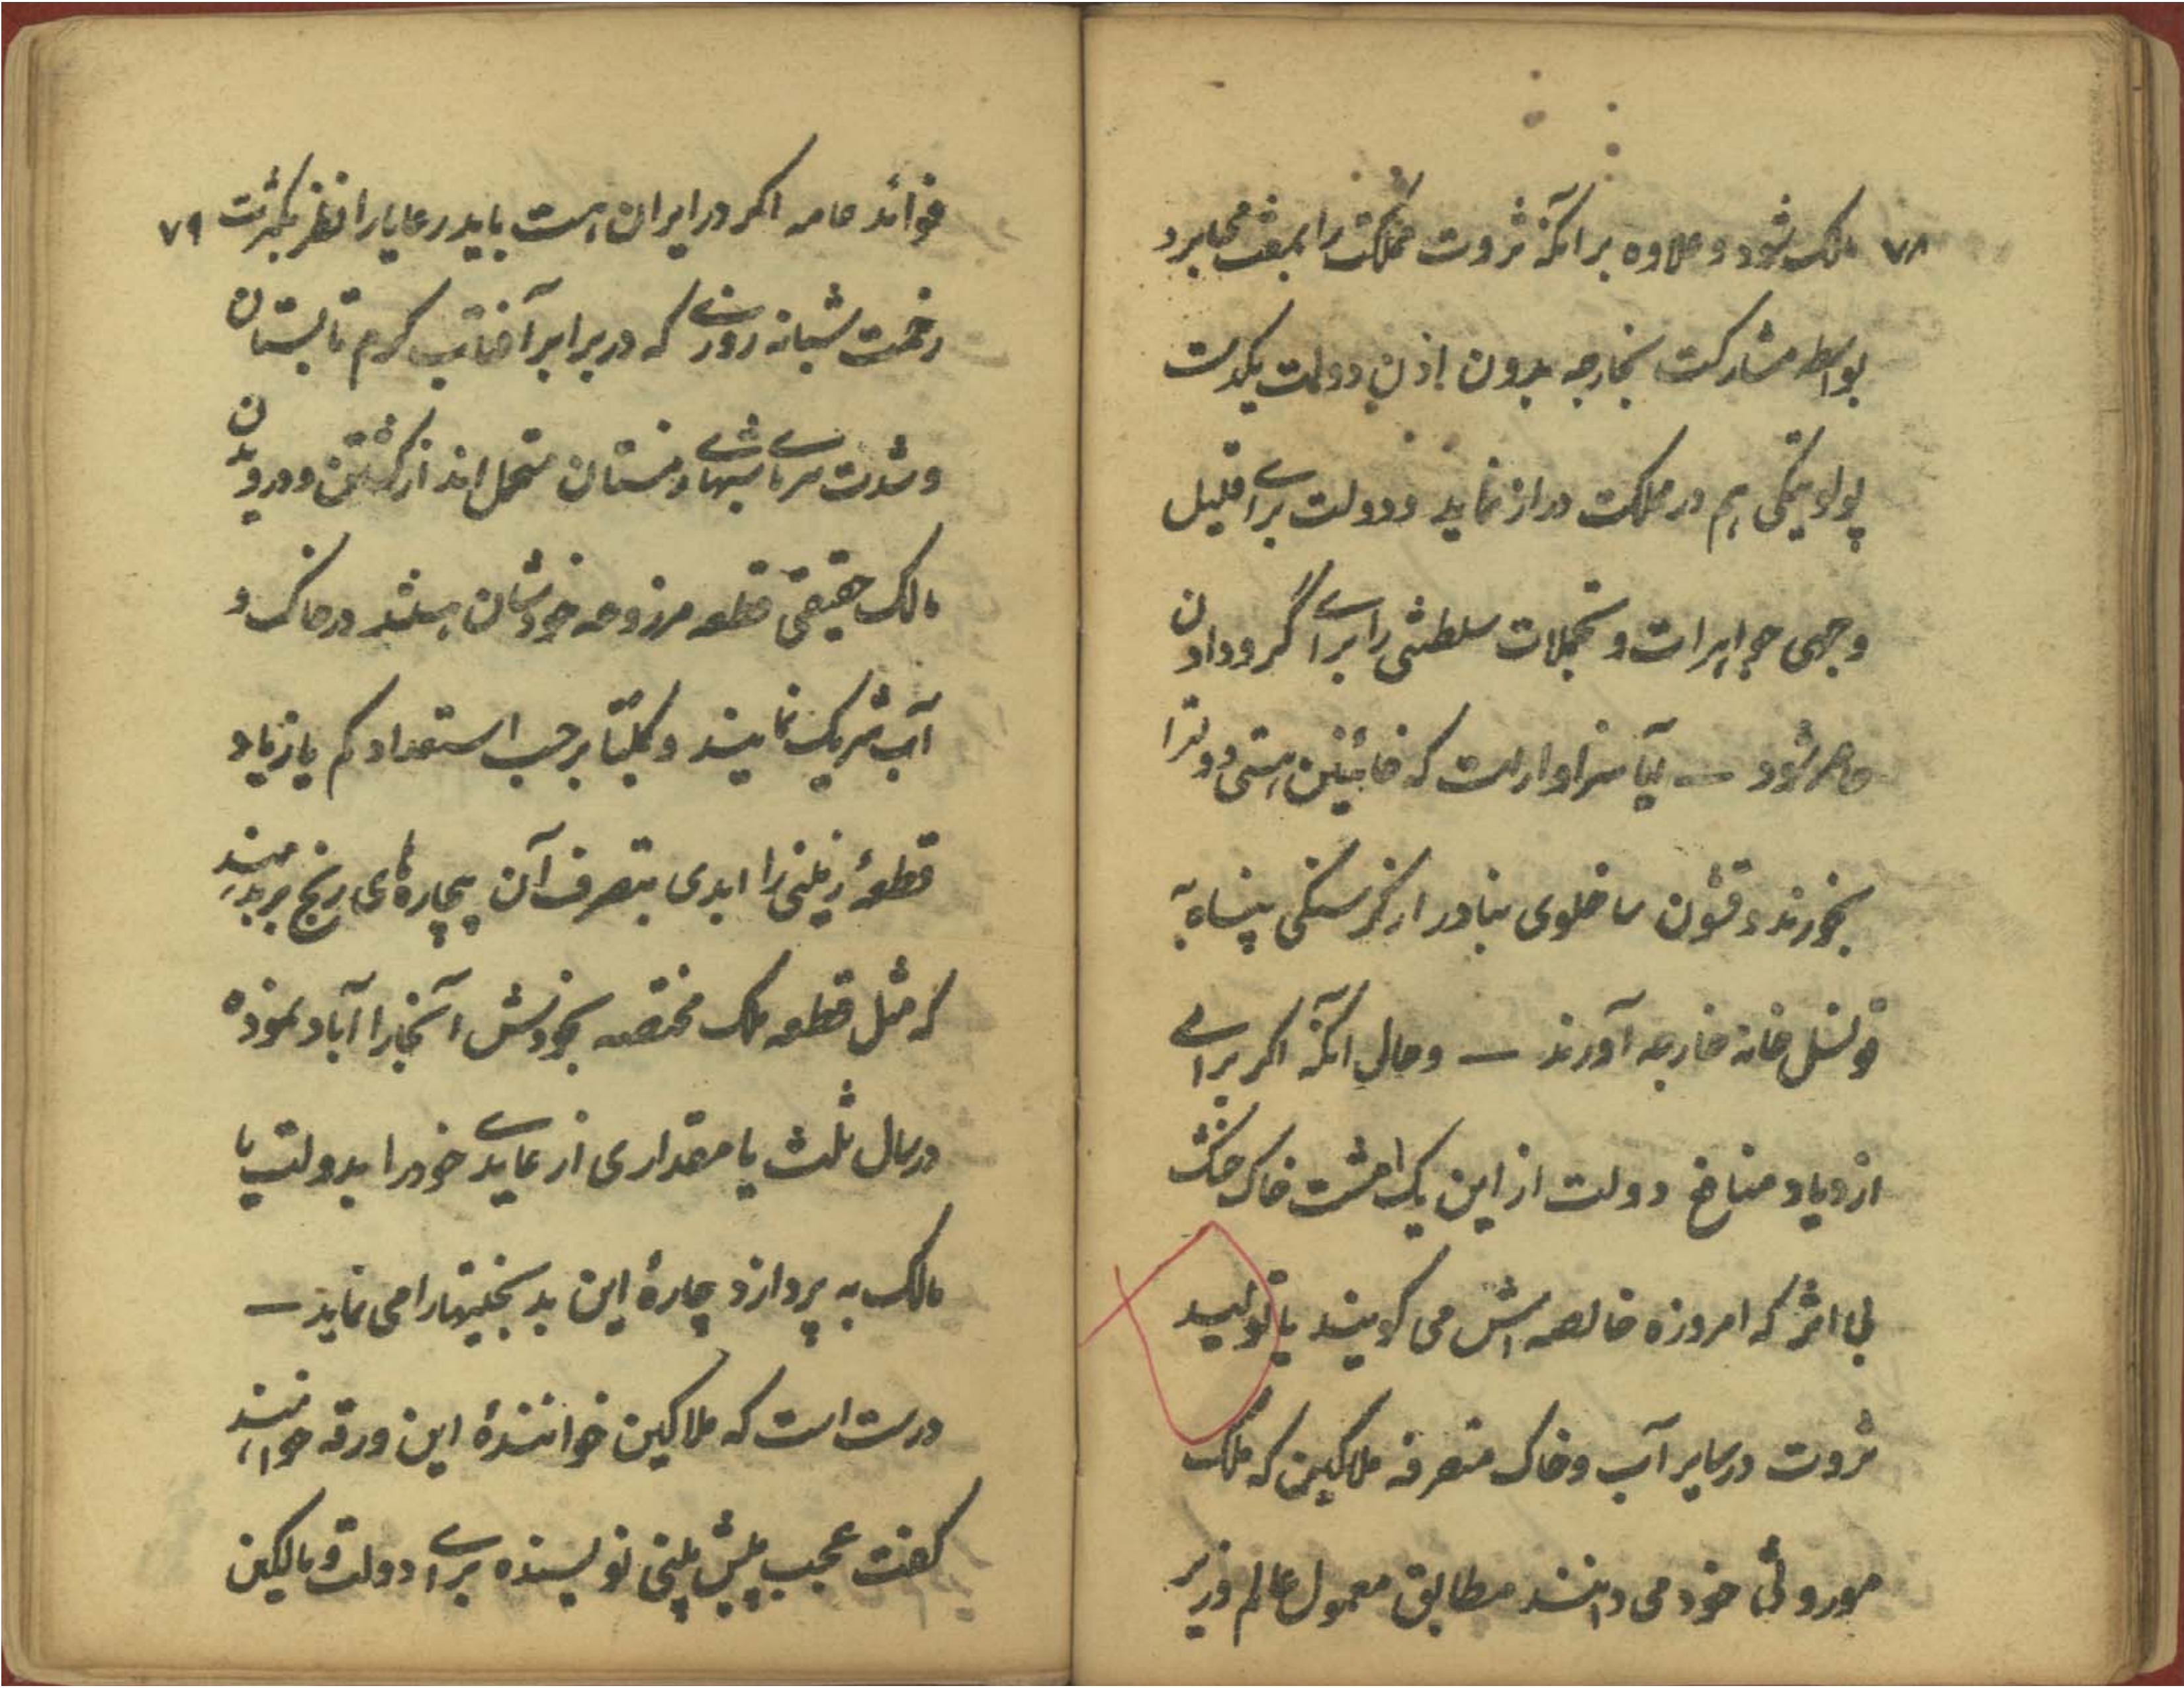 ۷۸ ملک شود و علاوه بر آنکه ثروت مملکت را بمفت میبرد
بواسطه مشارکت بخارجه بدون اذن دولت یکدست
پولوتیکی هم در مملکت دراز نماید و دولت برای قلیل
وجهی جواهرات و تجملات سلطنتی را برای گرو دادن
حاضر شود — آیا سزاوار است که خائنین هستی دولترا
بخورند و قشون ساخلوی بنادر از گرسنگی پناه به
قونسل خانه خارجه آورند — و حال آنکه اگر برای
ازدیاد منافع دولت از این یک مشت خاک خشک
بی اثر که امروزه خالصه اش می گویند یا تولید
ثروت در سایر آب و خاک متصرفه ملاکین که ملک
موروثی خود می دانند مطابق معمول عالم وزیر
فوائد عامه اگر در ایران هست باید رعایا را نظر بکثرت ۷۹
زحمت شبانه روزی که در برابر آفتاب گرم تابستان
و شدت سرمای شبهای زمستان متحمل اند از کشتن و درویدن
مالک حقیقی قطعه مزروعه خودشان بدانند در خاک و
آب شریک نمایند و کلیتا برحسب استعداد کم یا زیاد
قطعهٔ زمینی را ابدی بتصرف آن بیچاره های رنج بر بدهند
که مثل قطعه ملک مختصه بخودش آنجا را آباد نموده
در سال ثلث یا مقداری از عایدی خود را بدولت یا
مالک به پردازد چارهٔ این بدبختیها را می نماید —
درست است که ملاکین خوانندهٔ این ورقه خواهند
گفت عجب پیش بینی نویسنده برای دولت و مالکین